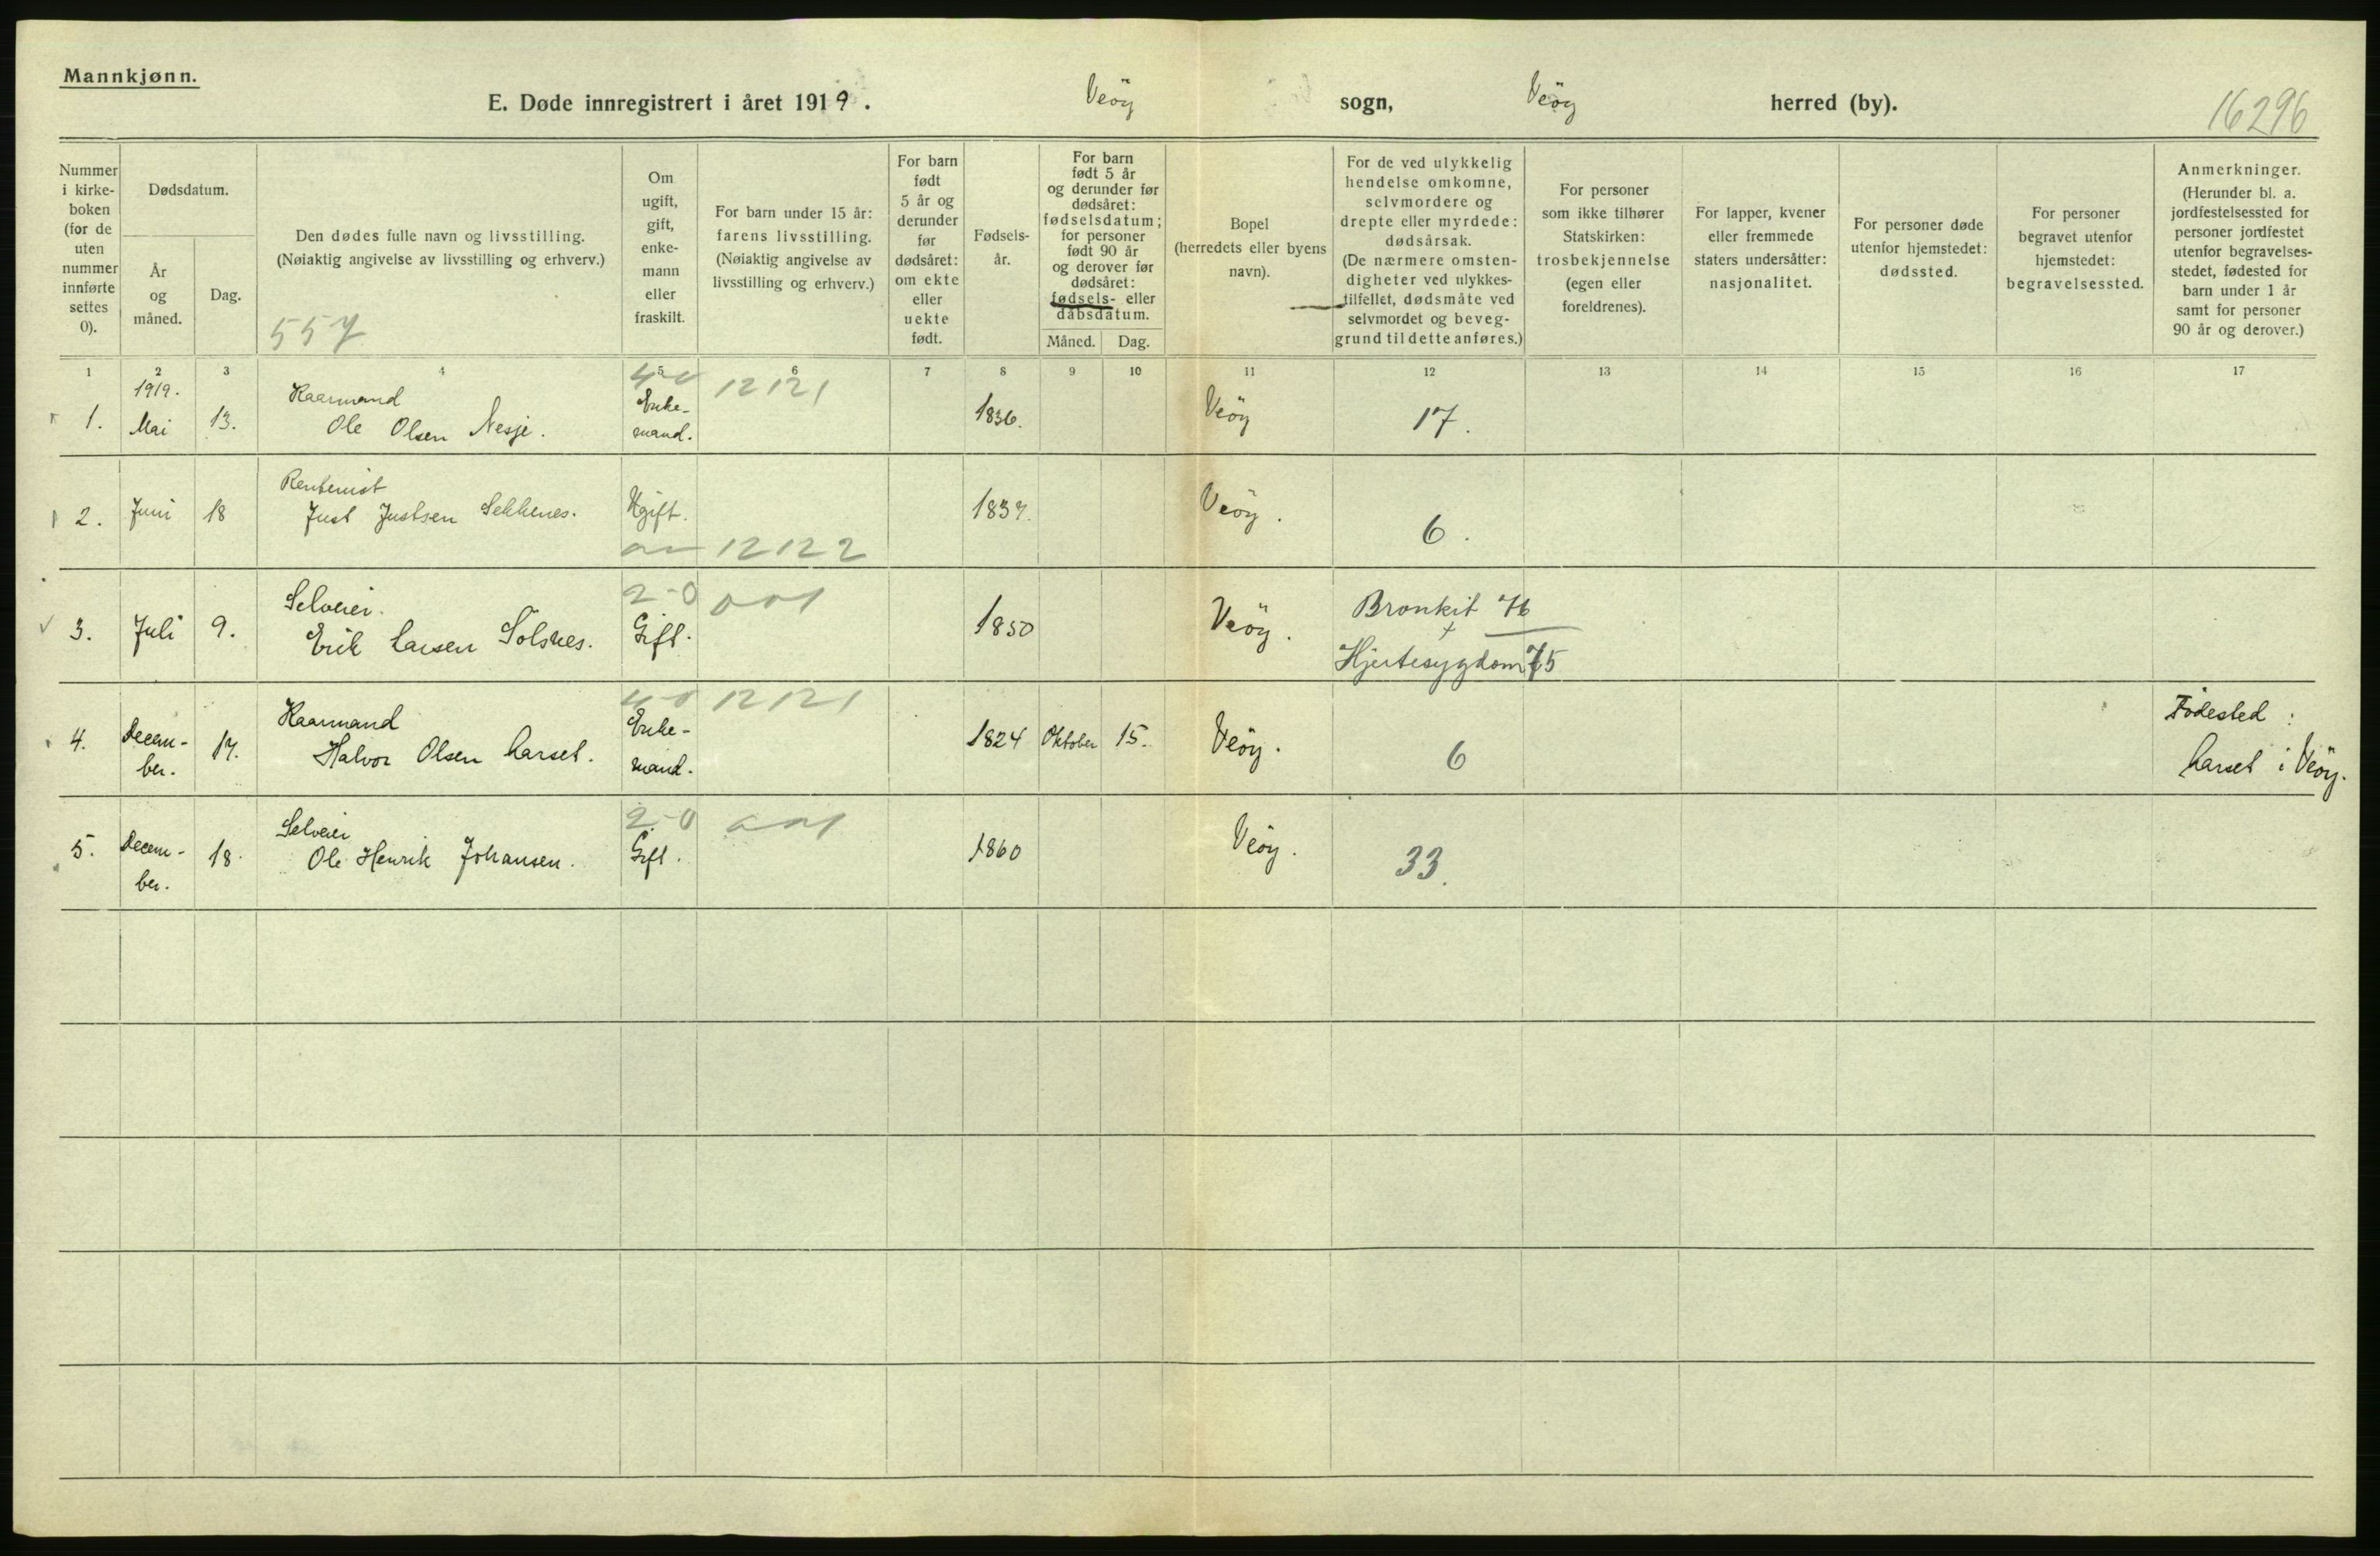 Mannkjønn.
E. Døde innregistrert i året 1919. Veöy sogn, Veöy herred (by).
16296
Nummer i kirke-boken (for de uten nummer innførte settes 0).
Dødsdatum.
År og måned.
Dag.
Den dødes fulle navn og livsstilling.
(Nøiaktig angivelse av livsstilling og erhverv.)
557
Om ugift, gift, enke-mann eller fraskilt.
For barn under 15 år: farens livsstilling. (Nøiaktig angivelse av livsstilling og erhverv.)
For barn født 5 år og derunder før dødsåret: om ekte eller uekte født.
Fødsels-år.
For barn født 5 år og derunder før dødsåret: fødselsdatum; for personer født 90 år og derover før dødsåret: fødsels- eller dåbsdatum.
Måned. Dag.
Bopel (herredets eller byens navn).
For de ved ulykkelig hendelse omkomne, selvmordere og drepte eller myrdede: dødsårsak. (De nærmere omsten-digheter ved ulykkes-tilfellet, dødsmåte ved selvmordet og beveg-grund til dette anføres.)
For personer som ikke tilhører Statskirken: trosbekjennelse (egen eller foreldrenes).
For lapper, kvener eller fremmede staters undersåtter: nasjonalitet.
For personer døde utenfor hjemstedet: dødssted.
For personer begravet utenfor hjemstedet: begravelsessted.
Anmerkninger. (Herunder bl. a. jordfestelsessted for personer jordfestet utenfor begravelses-stedet, fødested for barn under 1 år samt for personer 90 år og derover.)
1 2 3 4 5 6 7 8 9 10 11 12 13 14 15 16 17
1919.
1. Mai 13. Kaarmand
Ole Olsen Nesje. Enke-mand. 12121 1836. Veöy 17.
2. Juni 18 Rentenist
Just Justsen Sekkenes. Ugift. 12122 1837. Veöy. 6.
3. Juli 9. Selveier.
Erik Larsen Sölsnes. 2-0 Gift. 001 1850 Veöy. Bronkit 76
+
Hjertesygdom 75
4. Decem-ber. 17. Kaarmand
Halvor Olsen Larset. Enke-mand. 12121 1824 Oktober 15. Veöy. 6 Födested:
Larset i Veöy.
5. Decem-ber. 18. Selveier
Ole Henrik Johansen. 2-0 Gift. 001 1860 Veöy. 33.